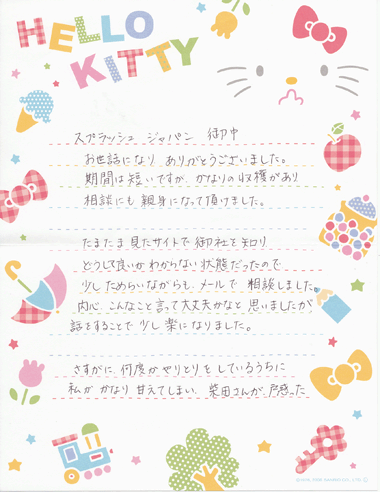 HELLO
KITTY
スプラッシュ ジャパン 御中
お世話になり ありがとうございました。
期間は短いですが、かなりの収穫があり
相談にも親身になって頂けました。
たまたま見たサイトで御社を知り
どうして良いかわからない状態だったので
少しためらいながらも、メールで相談しました。
内心、こんなこと言って大丈夫かなと思いましたが
話をすることで少し楽になりました。
さすがに、何度かやりとりをしているうちに
私がかなり甘えてしまい、柴田さんが、戸惑った